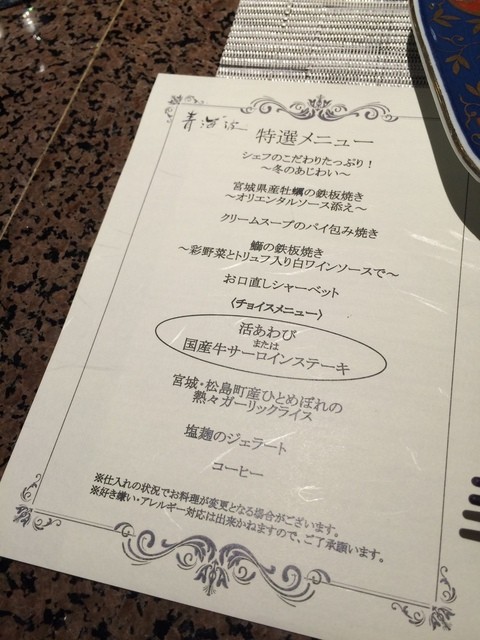 特選メニュー
シェフのこだわりたっぷり！
～冬のあじわい～
宮城県産牡蠣の鉄板焼き
～オリエンタルソース添え～
クリームスープのパイ包み焼き
鰤の鉄板焼き
～彩野菜とトリュフ入り白ワインソースで～
お口直しシャーベット
〈チョイスメニュー〉
活あわび
または
国産牛サーロインステーキ
宮城・松島町産ひとめぼれの
熱々ガーリックライス
塩麹のジェラート
コーヒー
※仕入れの状況でお料理が変更となる場合がございます。
※好き嫌い・アレルギー対応は出来かねますので、ご了承願います。